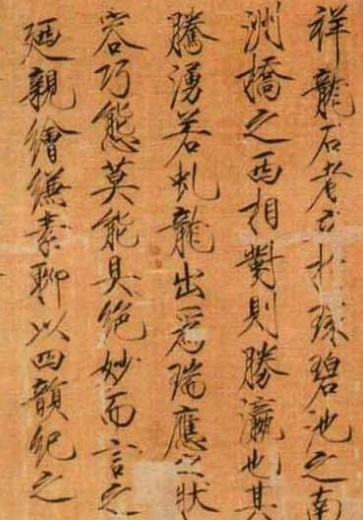 祥龍石者立於環碧池之南
洲橋之西相對則勝瀛也其
騰湧若虬龍出爲瑞應之狀
容巧態莫能具絕妙而言之
廼親繪縑素聊以四韻紀之